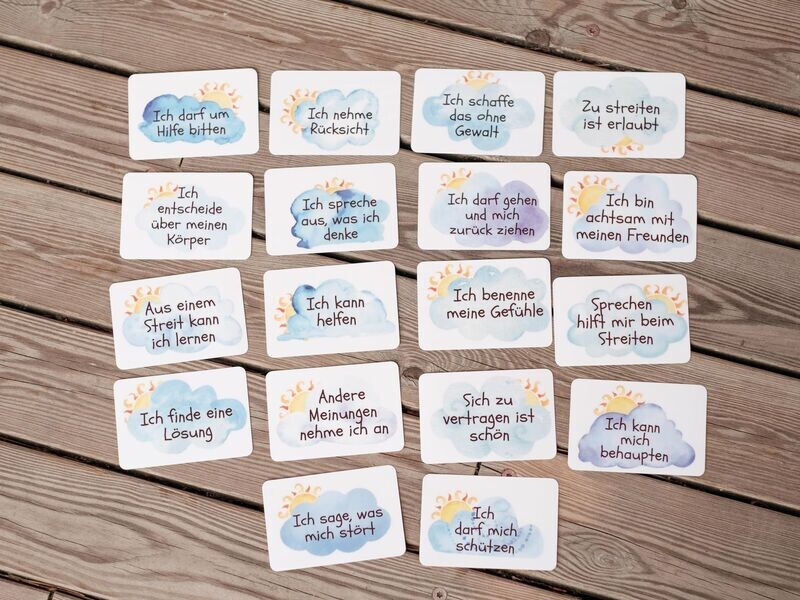 Ich darf um
Hilfe bitten
Ich nehme
Rücksicht
Ich schaffe
das ohne
Gewalt
Zu streiten
ist erlaubt
Ich
entscheide
über meinen
Körper
Ich spreche
aus, was ich
denke
Ich darf gehen
und mich
zurück ziehen
Ich bin
achtsam mit
meinen Freunden
Aus einem
Streit kann
ich lernen
Ich kann
helfen
Ich benenne
meine Gefühle
Sprechen
hilft mir beim
Streiten
Ich finde eine
Lösung
Andere
Meinungen
nehme ich an
Sich zu
vertragen ist
schön
Ich kann
mich
behaupten
Ich sage, was
mich stört
Ich
darf mich
schützen